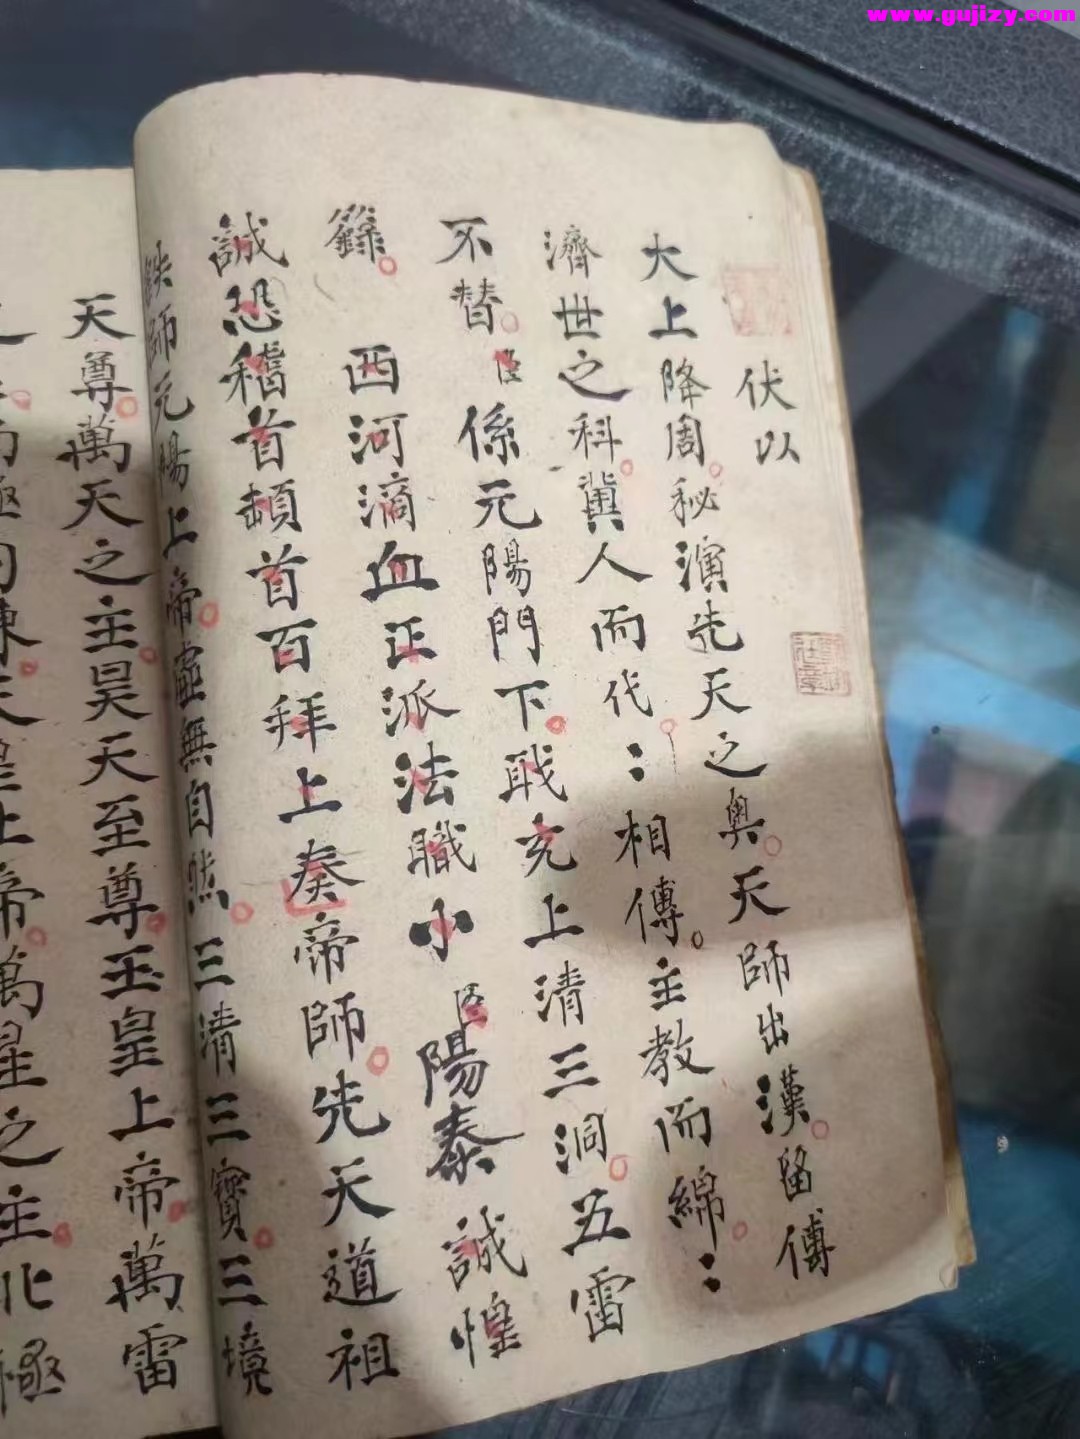 www.gujizy.com
伏以
大上降周。秘演先天之奥。天師出漢。留傳
濟世之科。冀人而代。：相傳。主教而綿。：
不替。臣係元陽門下。戢充上清三洞。五雷
籙。西河滴血正派法職小臣陽泰誠惶
誠恐稽首頓首百拜上奏帝師。先天道祖
鉄師元陽上帝。虛無自然。三清三寶。三境
天尊。萬天之主。昊天至尊。玉皇上帝。萬雷
帝。萬星之主。北極